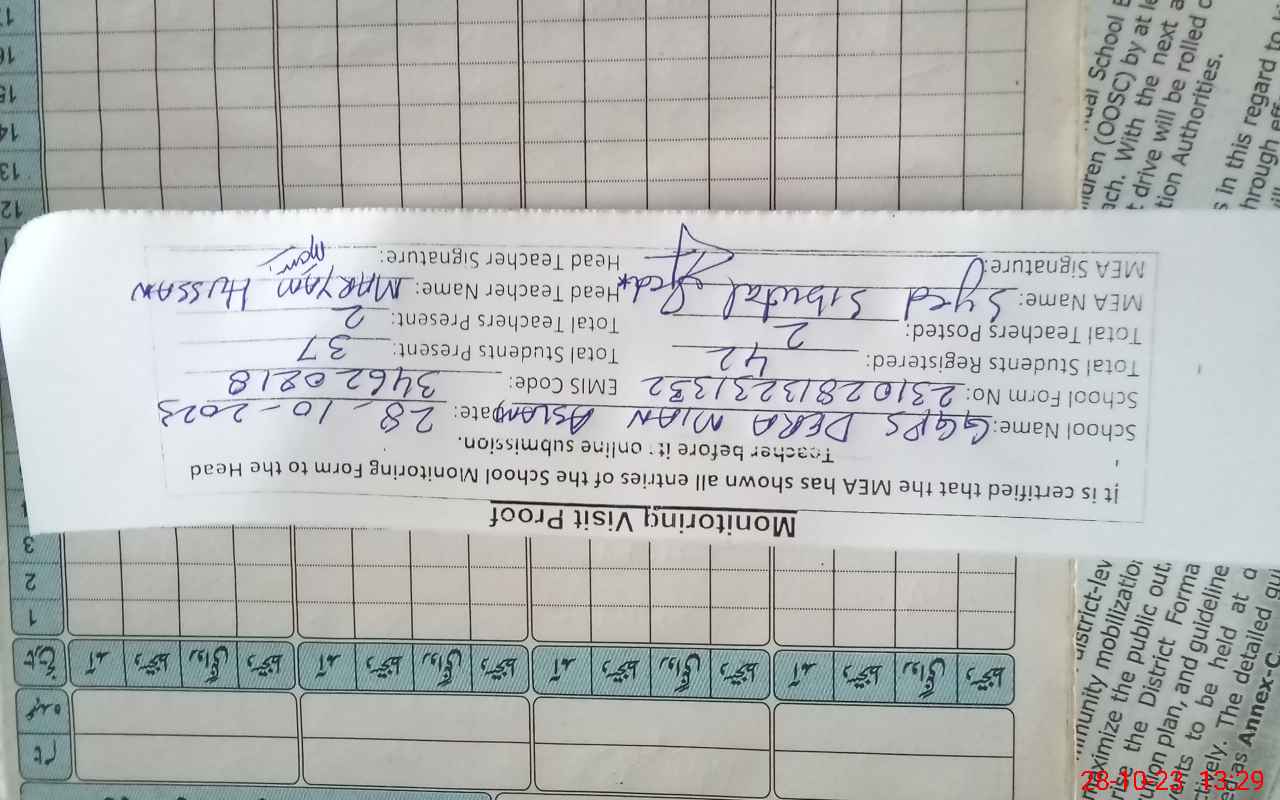 Monitoring Visit Proof
It is certified that the MEA has shown all entries of the School Monitoring Form to the Head
Teacher before its online submission.
School Name: GGPS DERA MIAN ASLAM Date: 28-10-2023
School Form No: 23102813231332 EMIS Code: 34620218
Total Students Registered: 42 Total Students Present: 37
Total Teachers Posted: 2 Total Teachers Present: 2
MEA Name: Syed Head Teacher Name: MARYAM HUSSAN
MEA Signature: Head Teacher Signature:
1
2
3
12
13
14
15
16
17
نام
عہدہ
تاریخ آمد دستخط روانگی دستخط آمد دستخط روانگی دستخط آمد دستخط روانگی دستخط آمد دستخط روانگی دستخط
ual School
(OOSC) by at
ach. With the next
drive will be rolled
tion Authorities.
s in this regard to
hrough
district-lev
munity mobilization
maximize the public out
the District Forma
plan, and guideline
to be held at
The detailed
as Annex-C.
28-10-23 13:29